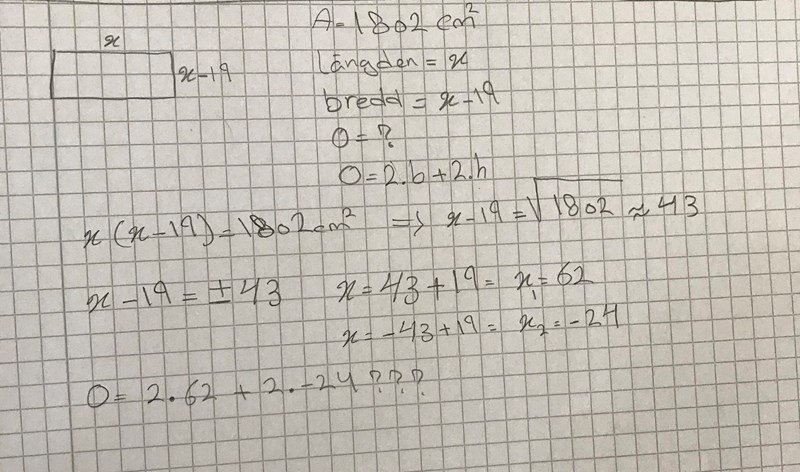 x
x-19
A=1802 cm²
Längden = x
bredd = x-19
O=?
O=2.b+2.h
x(x-19)=1802cm² => x-19=√1802 ≈ 43
x-19=±43 x=43+19= x₁=62
x=-43+19= x₂=-24
O= 2.62 + 2.-24???